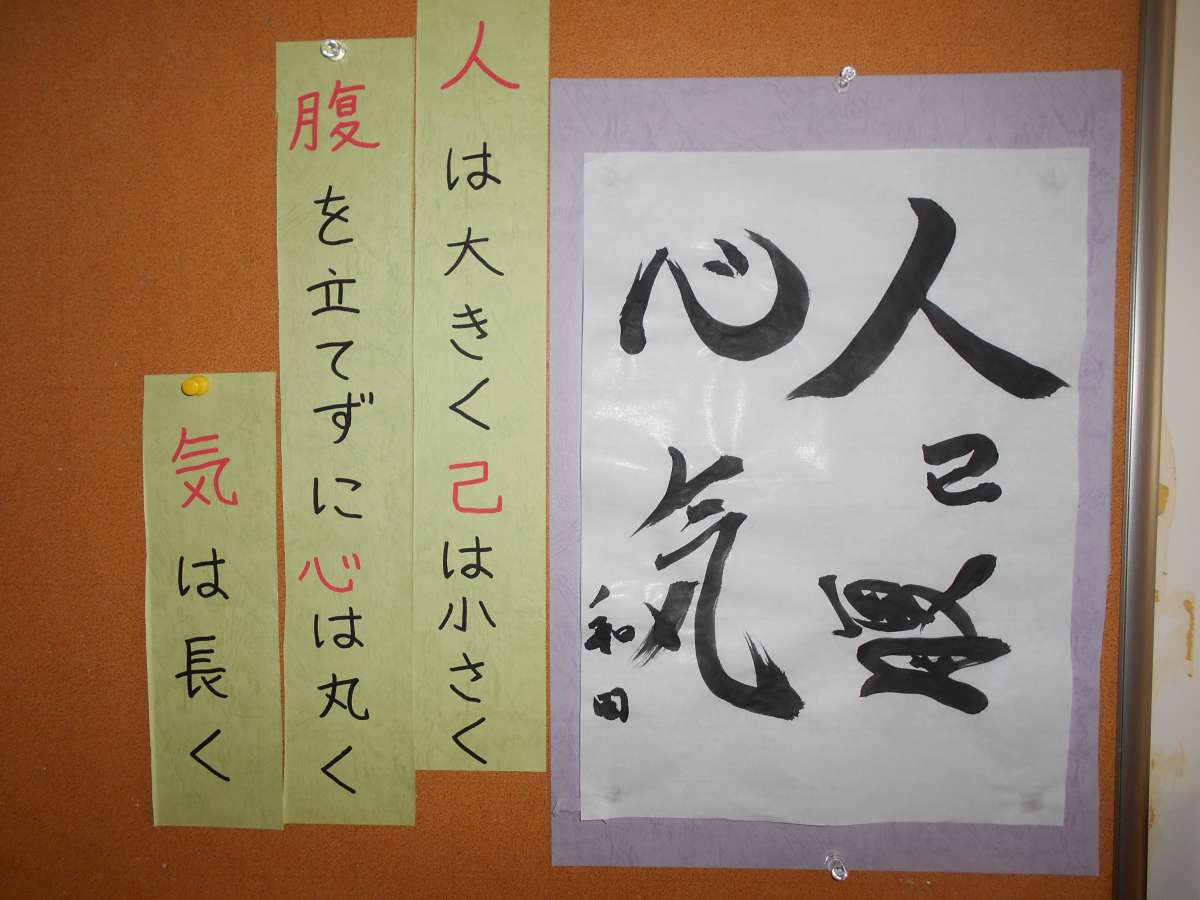 人己腹
心気
和田
人は大きく己は小さく
腹を立てずに心は丸く
気は長く